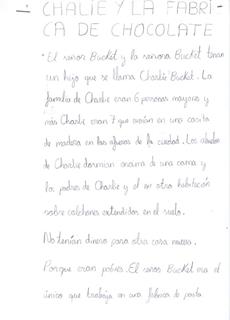 CHALIE Y LA FABRI
CA DE CHOCOLATE
• El señor Bucket y la señora Bucket tenian
un hijo que se llama Charlie Bucket. La
familia de Charlie eran 6 personas mayores y
más Charlie eran 7 que vivian en una casita
de madera en las afueras de la ciudad. Los abuelos
de Charlie dormian encima de una cama y
los padres de Charlie y el en otra habitación
sobre colchones extendidos en el suelo.
No tenían dinero para otra casa nueva.
Porque eran pobres. El señor Bucket era el
único que trabaja en una fabrica de pasta